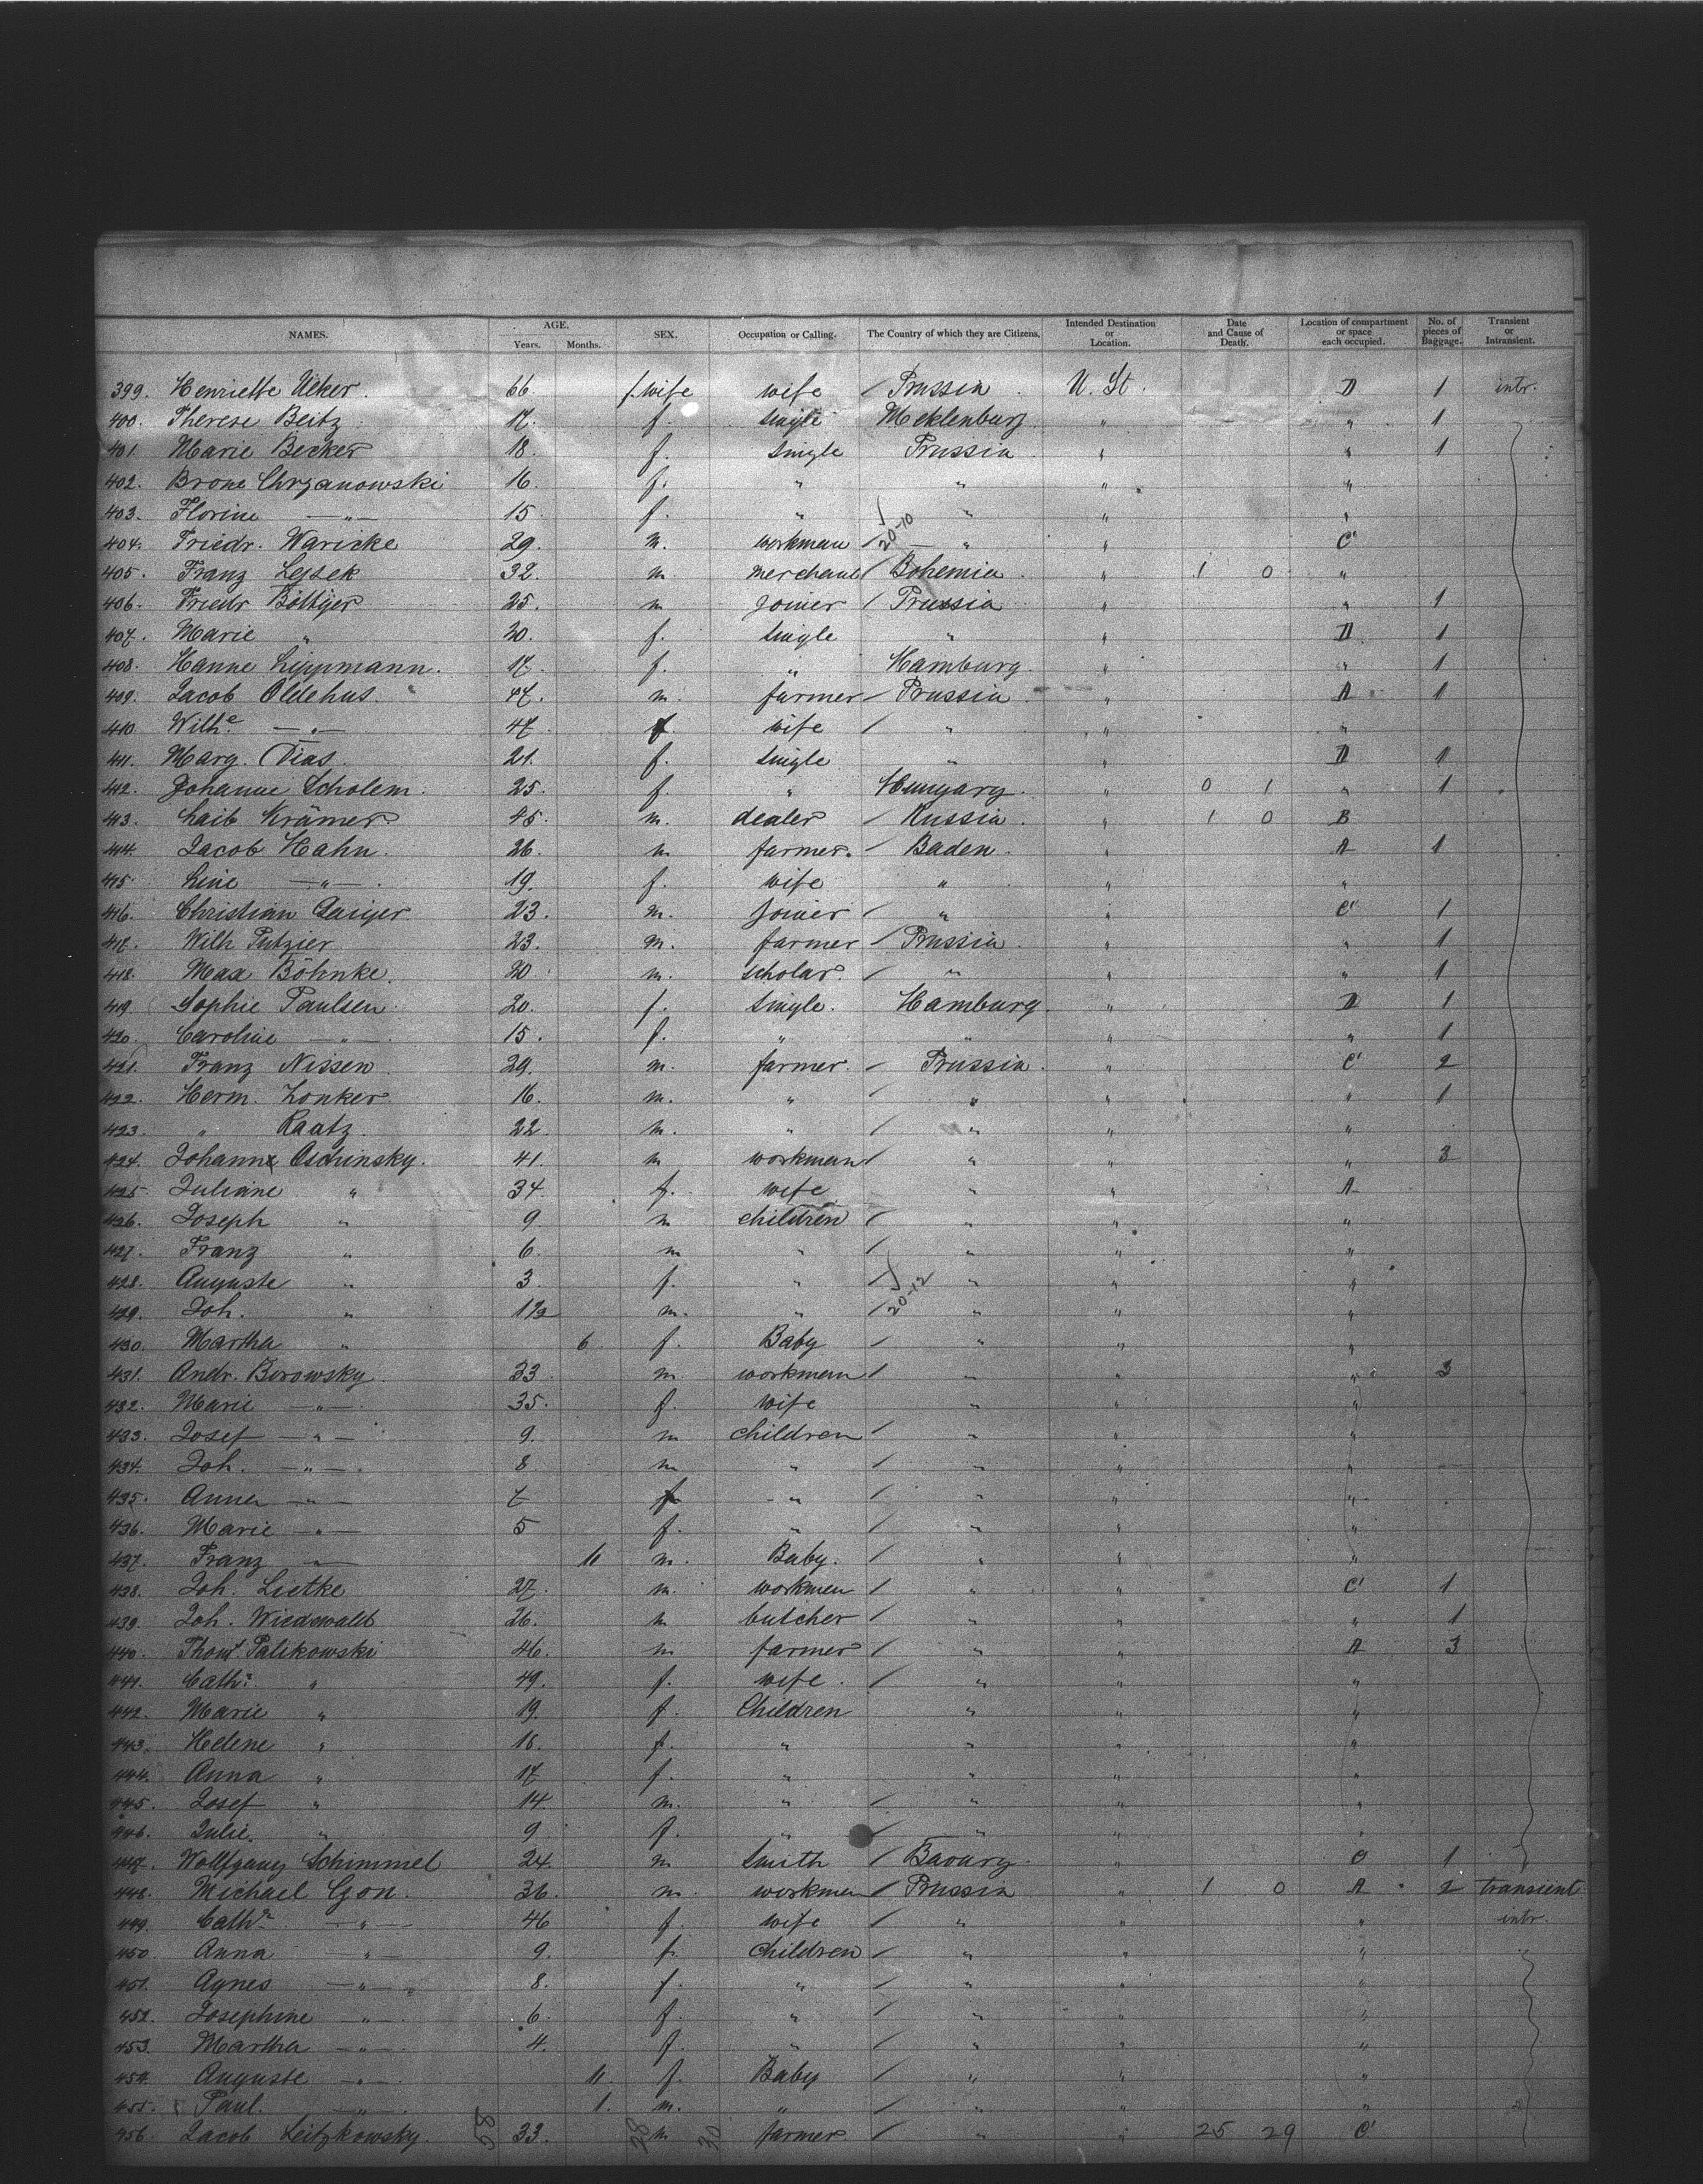 NAMES. AGE. Years. Months. SEX. Occupation or Calling. The Country of which they are Citizens. Intended Destination or Location. Date and Cause of Death. Location of compartment or space each occupied. No. of pieces of Baggage. Transient or Intransient.
399. Henriette Ücker. 66 f. wife wife / Prussia U. St. D 1 intr.
400. Therese Beitz 17. f. single Mecklenburg " " 1
401. Marie Becker 18. f. single Prussia " " 1
402. Brone Chrzanowski 16. f. " " " "
403. Florine —"— 15. f. " " " "
404. Friedr. Waricke 29. m. workman / 20-10 " " C
405. Franz Lejsek 32. m. merchant / Bohemia " 1 0 "
406. Friedr Böttger 25. m joiner / Prussia " " 1
407. Marie " 20. f. single " " D 1
408. Hanne Lippmann. 17. f. " Hamburg. " " 1
409. Jacob Oldehus. 47. m. farmer / Prussia " A 1
410. Wilhe —"— 47 f. wife / " " "
411. Marg. Dias. 21. f. single " " D 1
412. Johanne Scholem. 25. f. " Hungary. " 0 1 " 1
413. Laib Krämer 45. m. dealer / Russia " 1 0 B
414. Jacob Hahn. 26. m farmer. / Baden. " A 1
415. Line —"— 19. f. wife " " "
416. Christian 23. m. joiner / " " C 1
417. Wilh Putzier 23. m. farmer / Prussia. " " 1
418. Max Böhnke. 20. m. scholar. / " " 1
419. Sophie Paulsen 20. f. single. Hamburg. " D 1
420. Caroline —"— 15. f. " " " " 1
421. Franz Nissen 29. m. farmer. / Prussia. " C 2
422. Herm. Zonker 16. m. " / " " " 1
423. " Raatz. 22. m. " / " " "
424. Johann Oschinsky. 41. m workman / " " " 3
425. Juliane " 34. f. wife " " A
426. Joseph " 9 m children / " " "
427. Franz " 6. m " / " " "
428. Auguste " 3. f. " / " " "
429. Joh. " 1½ m. " / 20-12 " " "
430. Martha " 6 f. Baby / " " "
431. Andr. Borowsky 33 m workman / " " " 3
432. Marie —"— 35. f. wife " " "
433. Josef —"— 9. m children / " " "
434. Joh. —"— 8 m " / " " "
435. Anna —"— 7 f " / " " "
436. Marie —"— 5 f. " / " " "
437. Franz —"— 11 m. Baby. / " " "
438. Joh. Lietke 27. m. workmen / " " C 1
439. Joh. Wiedewald 26. m butcher / " " " 1
440. Thoms. Palikowski 46. m farmer / " " A 3
441. Cath: " 49. f. wife. / " " "
442. Marie " 19. f. Children " " "
443. Helene " 18. f. " " " "
444. Anna " 17 f. " " " "
445. Josef " 14 m. " / " " "
446. Julie. " 9 f. " / " " "
447. Wolfgang Schimmel 24. m smith / " C 1
448. Michael Gon. 36. m. workmen / Prussia " 1 0 A 2 transient
449. Cath: —"— 46 f. wife / " " " intr.
450. Anna —"— 9. f. children / " " "
451. Agnes —"— 8. f. " / " " "
452. Josephine —"— 6. f. " / " " "
453. Martha —"— 4. f. " / " " "
454. Auguste —"— 11. f. Baby / " " "
455. Paul. —"— 1. m. " / " " "
456. Jacob Leitzkowsky. 58 33. 28 m 30 farmer. / " " 25 29 C